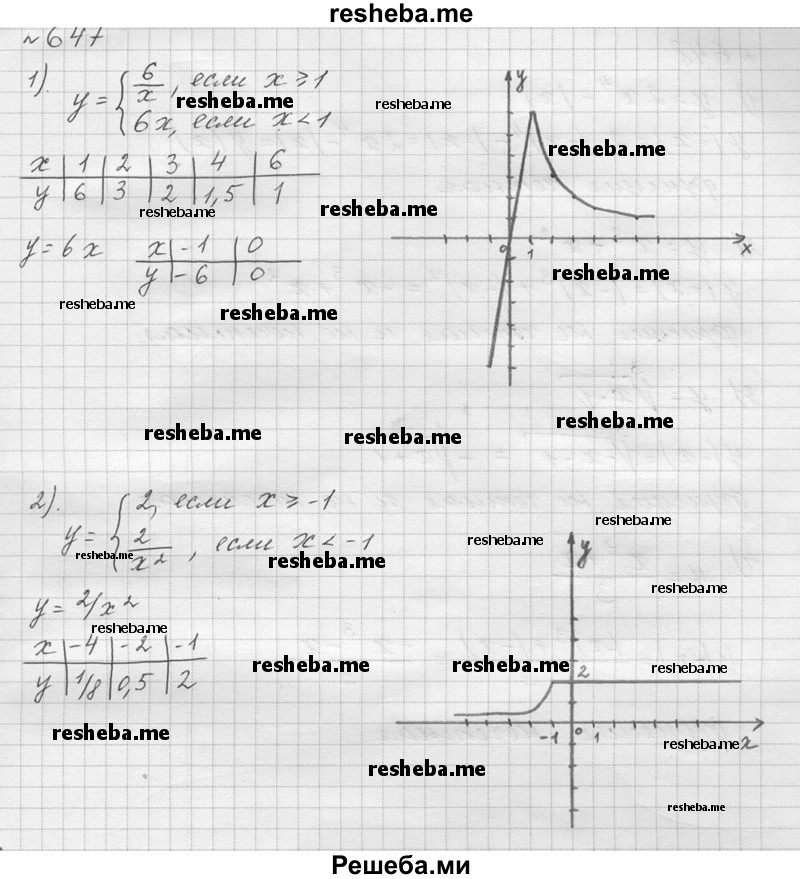 resheba.me
№647
1). y = { 6/x, если x ⩾ 1
6x, если x < 1
resheba.me
resheba.me
x | 1 | 2 | 3 | 4 | 6
y | 6 | 3 | 2 | 1,5 | 1
resheba.me
resheba.me
y = 6x
x | -1 | 0
y | -6 | 0
resheba.me
resheba.me
y
resheba.me
0 1 x
resheba.me
resheba.me
resheba.me
resheba.me
2). y = { 2, если x ⩾ -1
2/x², если x < -1
resheba.me
resheba.me
y = 2/x²
resheba.me
x | -4 | -2 | -1
y | 1/8 | 0,5 | 2
resheba.me
resheba.me
resheba.me
resheba.me
y
resheba.me
resheba.me
2
resheba.me
-1 0 1 x
resheba.me
resheba.me
resheba.me
Решеба.ми